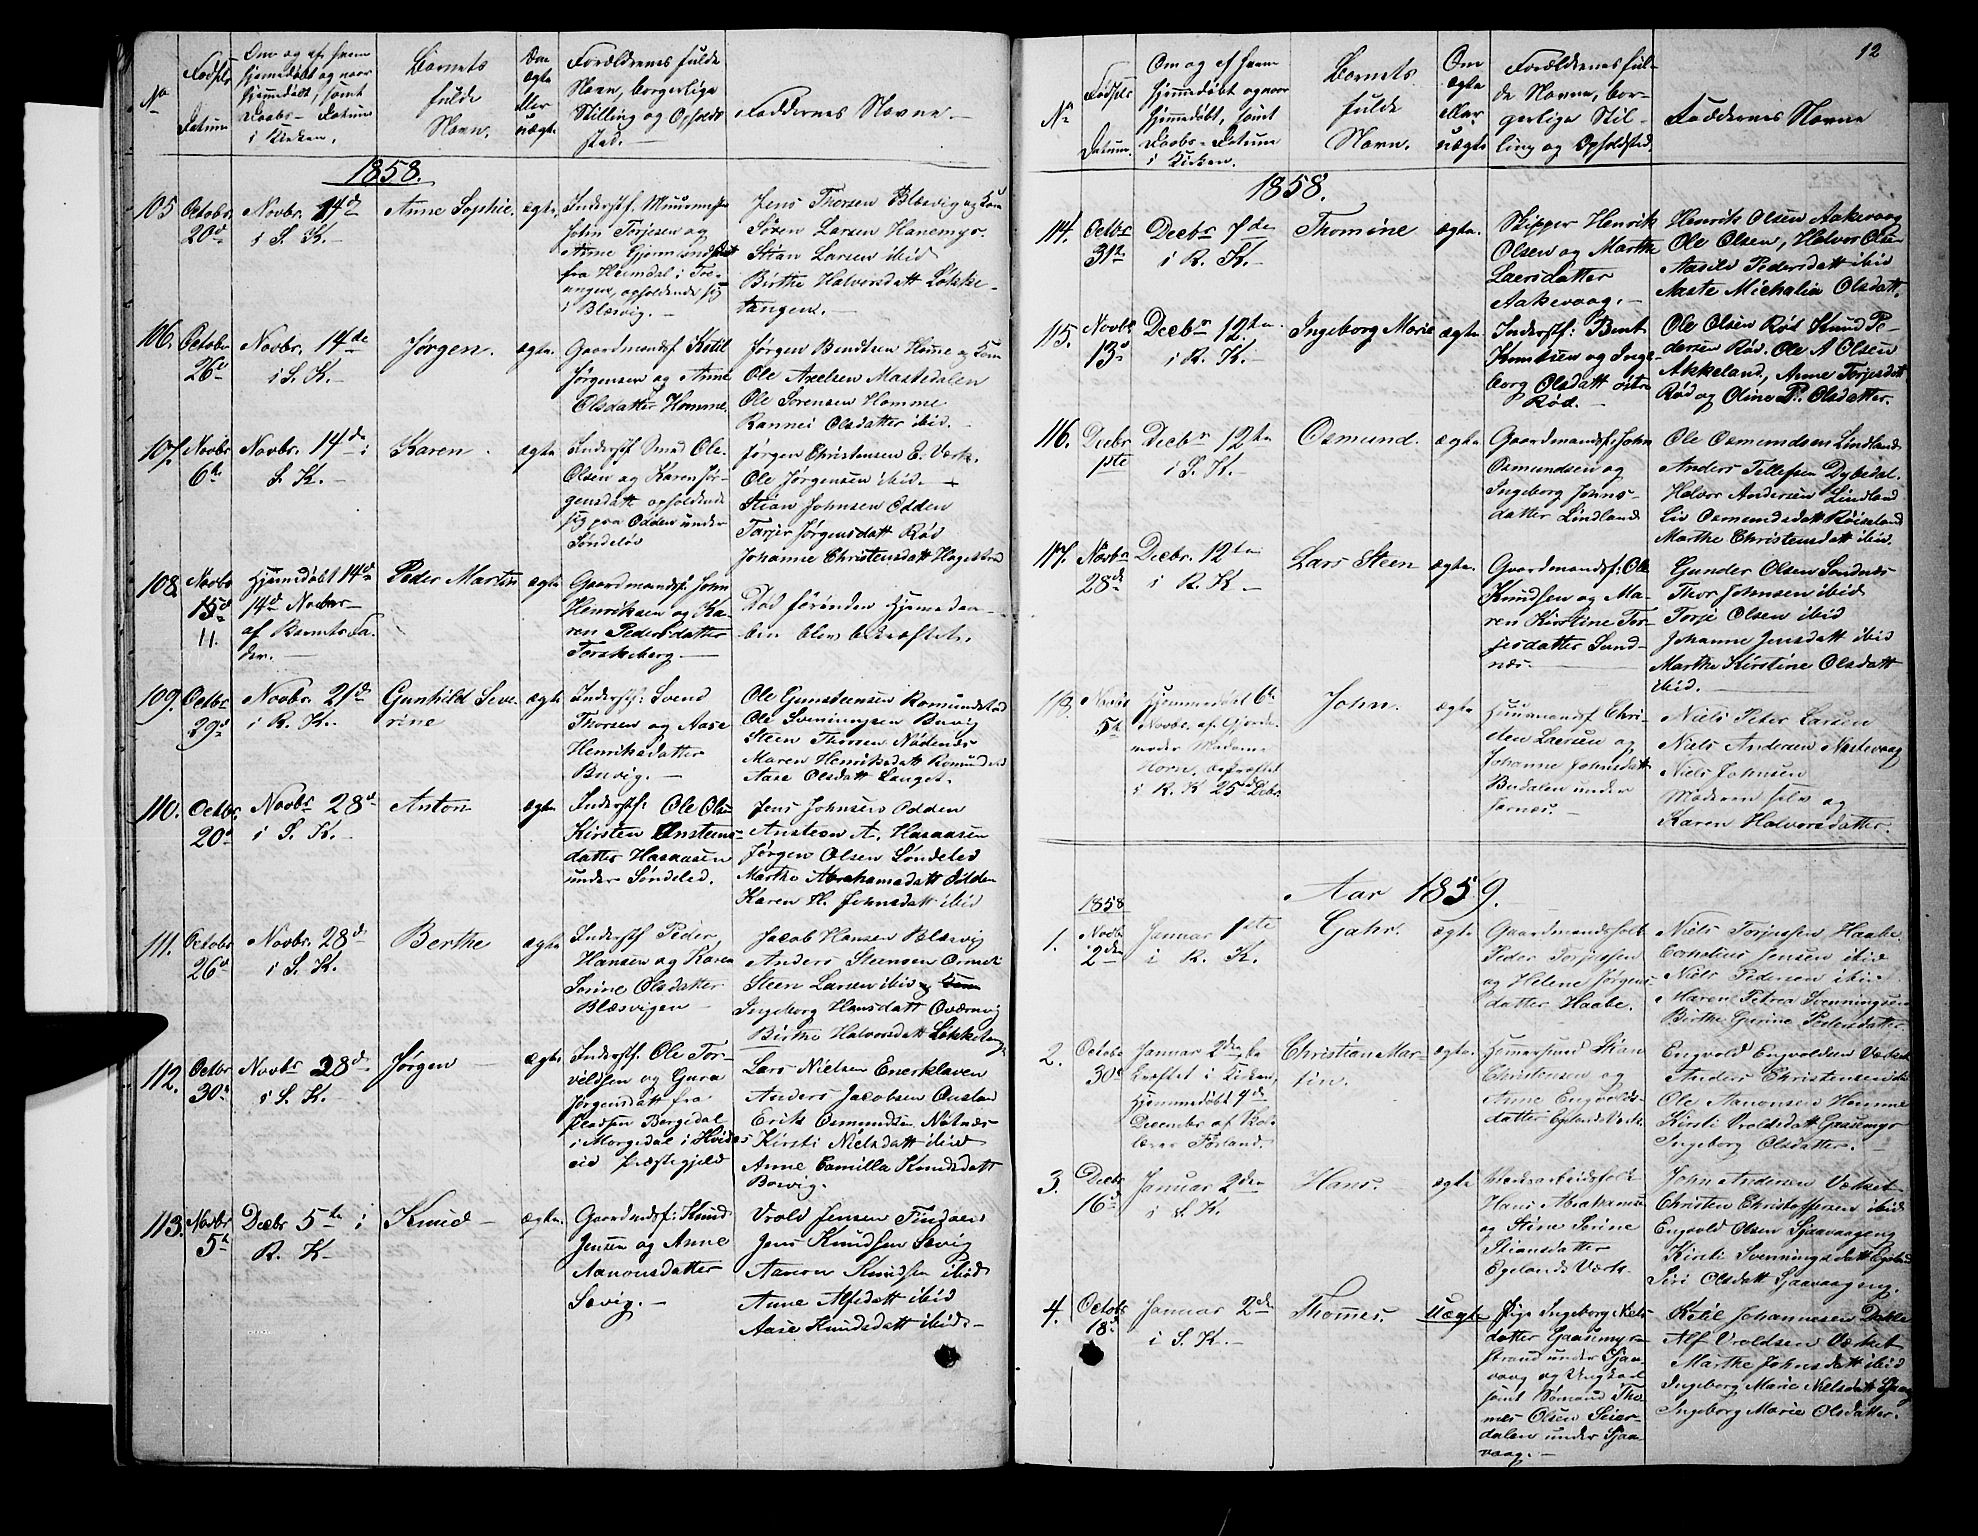 No
Fødsels
Datum
Om og af hvem
hjemmedøbt og naar
hjemdøbt, samt
Daabs-Datum
i Kirken.
Barnets
fulde
Navn.
Om
ægte
eller
uægte
Forældrenes fulde
Navn, borgerlige
Stilling og Opholds
sted.
Faddernes Navne.
1858.
105
Octobr.
20d
Novbr. 14d
i S. K. —
Anne Sophie.
ægte.
John Terjesen og
Anne Gjermundsdatt
fra Heimdal i
opholdende sig
i Blæsvig. —
Jens Thorsen Blæsvig og Kone
Søren Larsen Hanemyr.
Stian Larsen ibid
Birthe Halversdatt Løkke-
tangen. —
106.
October
26d
Novbr. 14de
i S. K. —
Jørgen.
ægte.
Gaardmandsf. Ketil
Jørgensen og Anne
Olsdatter Homme.
Jørgen Bendtsen Homme og Kone
Ole Axelsen Mastedalen
Ole Sørensen Homme
Rannei Olsdatter ibid. —
107.
Novbr
6te
Novbr. 14de i
S. K. —
Karen.
ægte
Inderstf. Smed Ole
Olsen og Karen Jør-
gensdatt opholdende
sig paa Odden under
Søndeløv
Jørgen Christensen E. Værk.
Ole Jørgensen ibid. —
Stian Johnsen Odden
Jørgensdatt Rød
Johanne Christensdatt Hagestad
108.
Novbr
15d
11.
Hjemdøbt 14de
14d Novbr
af Barnets Fa-
der. —
Peder Martin
ægte
Gaardmandsf. John
Henriksen og Ka-
ren Pedersdatter
Torskeberg. —
Død førenden Hjemdaa-
ben blev bekræftet. —
109.
Octbr
29d
Novbr. 21de
i R. K. —
Gunhild Seve-
rine
ægte
Inderstf: Svend
Thorsen og Aase
Henriksdatter
Buvig. —
Ole Gunsteensen Romundstad
Ole Sveningsen Buvig
Steen Thorsen Nøstenæs
Maren Henriksdatt Romundstad
Aase Olsdatt Langet.
110.
Octbr.
20d
Novbr 28d
i S. K. —
Anton
ægte
Inderstf: Ole Ols
Kirsten Ansteens-
datter Hasaasen
under Søndeled.
Jens Johnsens Odden
Ansteen A. Hasaasen
Jørgen Olsen Søndeled
Marthe Abrahamsdatt Odden
Karen H. Johnsdatt ibid
111.
Octobr
26d
Novbr. 28d
i S. K.
Berthe
ægte
Inderstf Peder
Hansen og Karen
Sorine Olsdatter
Blæsvigen —
Jacob Hansen Blæsvig
Anders Steensen
Steen Larsen ibid og Kone
Ingeborg Hansdatt
Birthe Halvorsdatt Løkketange
112.
Octbr
30d
Novbr. 28d
i S. K. —
Jørgen
ægte
Inderstf. Ole Tor-
vildsen og Gura
Jørgensdatt fra
Pladsen Bergedal
i Morgedal i Hvides-
eid Præstegjeld
Lars Nielsen Enerklaven
Anders Jacobsen
Erik Osmundsen
Kirsti Nielsdatt ibid
Anne Camilla Knudsdatt
Bosvig. —
113.
Novbr
5te
Decbr 5te i
R. K. —
Knud
ægte.
Gaardmdsf: Knud
Jensen og Anne
Aanonsdatter
Sævig. —
Vrold Jensen
Jens Knudsen Sævig
Aanon Knudsen ibid
Anne Alfsdatt ibid
Aase Knudsdatt ibid. —
12
No
Fødsels
Datum.
Om og af hvem
hjemmedøbt og naar
hjemmedøbt, samt
Daabs-Datum
i Kirken.
Barnets
fulde
Navn.
Om
ægte
eller
uægte
Forældrenes ful-
de Navne, bor-
gerlige Stil-
ling og Opholdsted
Faddernes Navne
1858.
114.
Octbr
31te
Decbr 7de
i R. K. —
Thomine
ægte.
Skipper Henrik
Olsen og Marthe
Laersdatter
Aakevaag. —
Henrik Olsen Aakevaag
Ole Olsen, Halvor Olsen
Aasild Pedersdatt ibid
Aaste Michalia Olsdatt.
115.
Novbr
13d
Decbr 12te
i R. K. —
Ingeborg Marie
ægte.
Inderstf: Bent
Knudsen og Inge-
borg Olsdatt østre
Rød. —
Ole Olsen Rød Knud Pe-
dersen Rød. Ole A Olsen
Akkeland, Anne Torjesdatt
Rød og Oline P. Olsdatter.
116.
Decbr
1ste
Decbr 12te
i S. K. —
Osmund.
ægte.
Gaardmandsf: John
Osmundsen og
Ingeborg Johns-
datter Lindland
Ole Osmundsen Lindland
Anders Tellefsen Dybedal.
Halvor Andersen Lindland
Liv Osmundsdatt Røiseland
Marthe Christensdatt ibid.
117.
Novbr
28d
Decbr. 12te
i R. K —
Lars Steen
ægte.
Gaardmandsf: Ole
Knudsen og Ma-
ren Kirstine Tor-
jesdatter Sand-
næs. —
Gunder Olsen Sandnæs
Thor Johnsen ibid
Torje Olsen ibid
Johanne Jensdatt ibid
Marthe Kirstine Olsdatt
ibid. —
118.
Novbr
5te
Hjemmedøbt 6te
Novbr. af Gjorde-
moder Madame
Horn, bekræftet
i R. K 25d Decbr.
John.
ægte
Huusmandsf Chri-
sten Laersen og
Johanne Johnsdatt
Budalen under
Niels Peter Larsen
Niels Andersen Næstevaag
Niels Johnsen
Moderen selv og
Karen Halvorsdatter.
Aar 1859.
1858
1.
Novbr
2den
Januar 1ste
i R. K.
Gahr.
ægte
Gaardmandsfolk
Peder Torjussen
og Helene Jørgens-
datter Haabe.
Niels Torjussen Haabe.
Cornelius Jensen ibid
Niels Pedersen ibid
Maren Petrea Svenningsen
Birthe Gurine Pedersdatter
2.
October
30te
Januar 2den be
kræftet i Kirken,
hjemmedøbt 4de
December af Sko-
lærer Førland.
Christian Mar-
tin.
ægte.
Stian
Christensen og
Anne Engvolds-
datter Egelands Værk.
Engvold Engvoldsen Værket
Anders Christensen ibid
Ole Aanonsen Homme
Kirsti Vroldsdatt Gaasemyr
Ingeborg Olsdatter. —
3.
Decbr
16d
Januar 2den
i S. K.
Hans.
ægte
Værksarbeidsfolk
Hans Abrahams
og Stine Sorine
Stiansdatter
Egelands Værk
John Andersen Værket
Christen Christoffersen ibid
Engvold Olsen Sjaavaageng
Kirsti Svenningsdatt Egeland
Siri Olsdatt Sjaavaageng.
4.
Octobr
18d
Januar 2den
i S. K. —
Thomes.
uægte
Pige Ingeborg Niels-
datter Gaasemyr-
strand under Sjaa-
vaag og Ungkarl
samt Sømand Tho-
mes Olsen Seier-
dalen under Sjaa-
vaag. —
Ketil Johannesen Dokka
Alf Vroldsen Værket
Marthe Johnsdatt ibid
Ingeborg Marie Nielsdatt Sjaavaag
Ingeborg Marie Olsdatter.